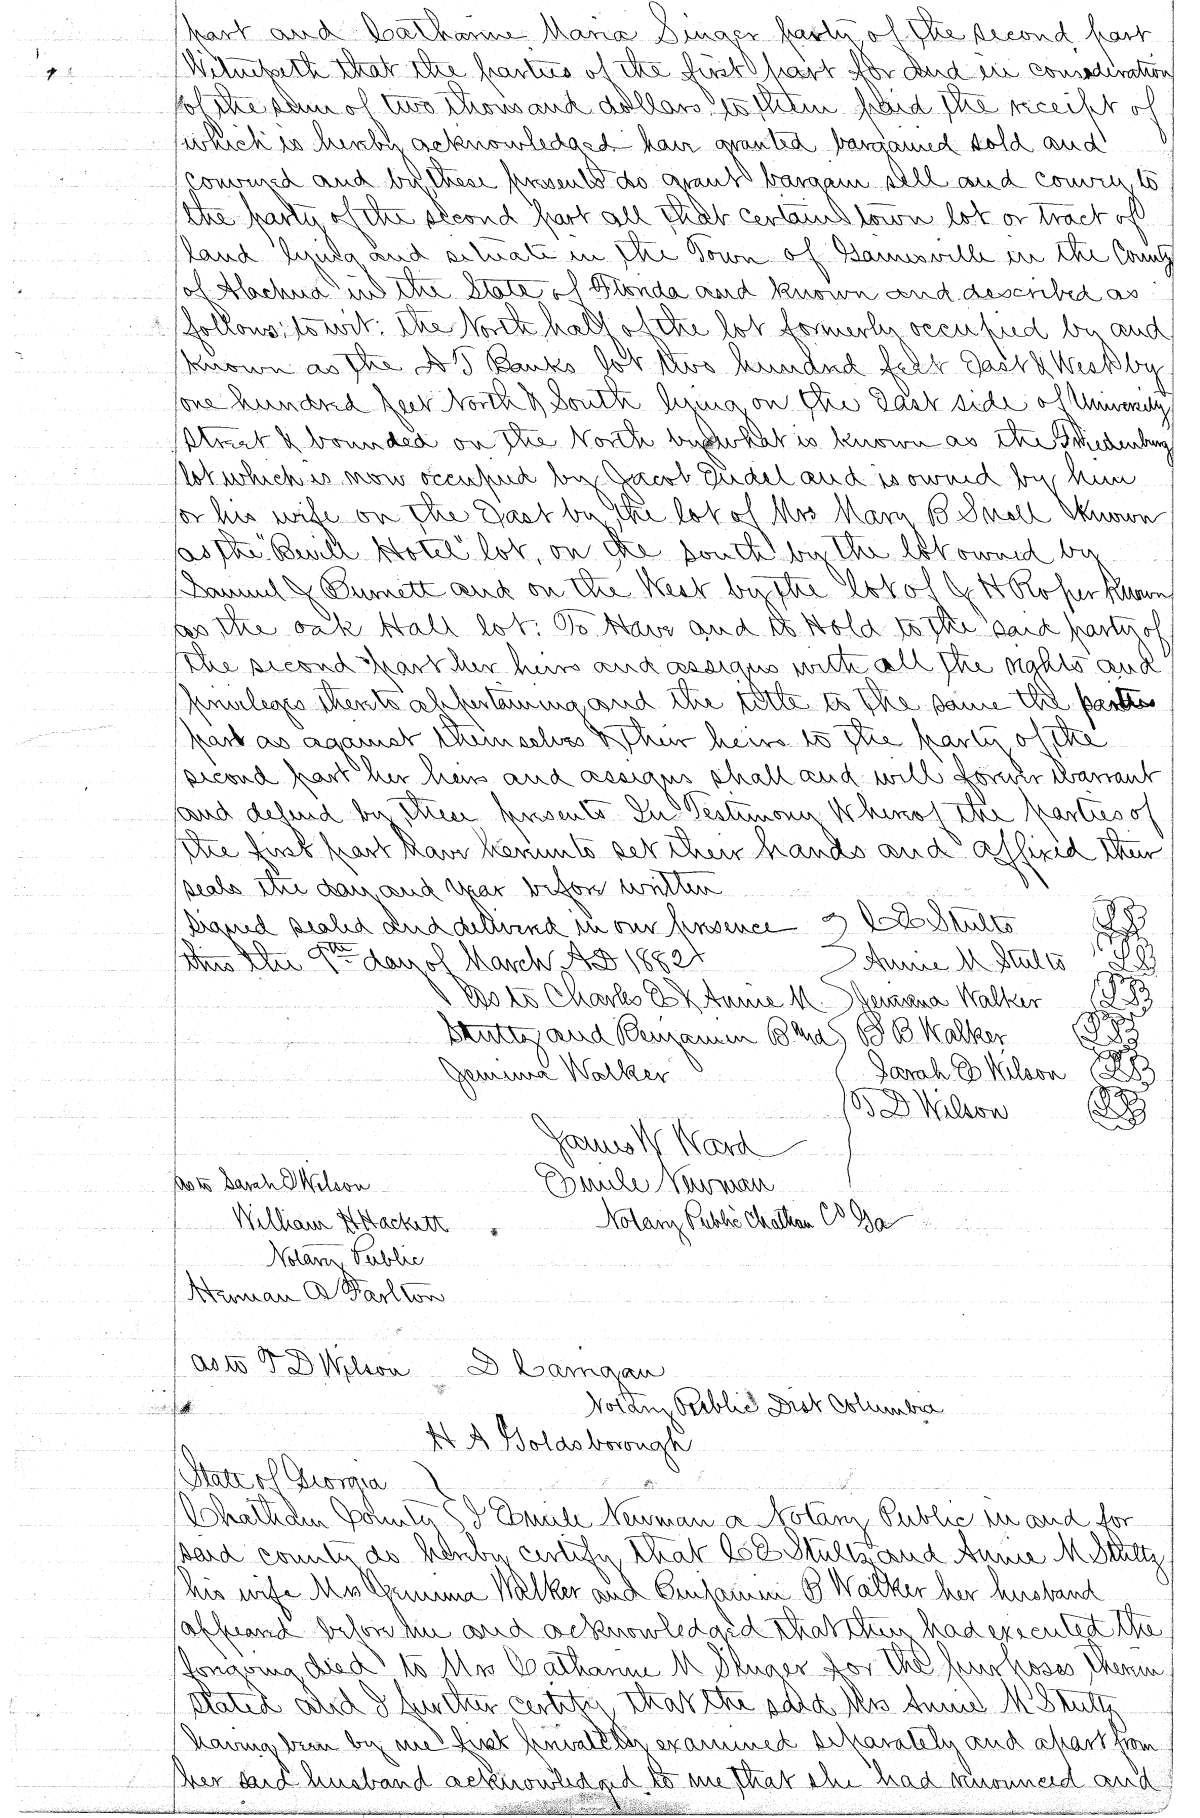 part and Catharine Maria Singer party of the second part
Witnesseth that the parties of the first part for and in consideration
of the sum of two thousand dollars to them paid the receipt of
which is hereby acknowledged have granted bargained sold and
conveyed and by these presents do grant bargain sell and convey to
the party of the second part all that certain town lot or tract of
land lying and situate in the Town of Gainesville in the County
of Alachua in the State of Florida and known and described as
follows; to wit: the North half of the lot formerly occupied by and
known as the A T Banks lot two hundred feet East & West by
one hundred feet North & South lying on the East side of University
Street & bounded on the North by what is known as the
lot which is now occupied by Jacob Endel and is owned by him
or his wife on the East by the lot of Mrs Mary B Snell known
as the "Bevill Hotel" lot, on the south by the lot owned by
Samuel J Burnett and on the West by the lot of J H Roper known
as the oak Hall lot: To Have and to Hold to the said party of
the second part her heirs and assigns with all the rights and
privileges thereto appertaining and the title to the same the parties
part as against themselves & their heirs to the party of the
second part her heirs and assigns shall and will forever warrant
and defend by these presents In Testimony Whereof the parties of
the first part have hereunto set their hands and affixed their
seals the day and year before written
Signed sealed and delivered in our presence C E Stults
this the 9th day of March AD 1882 Annie M Stults
As to Charles E & Annie M. Jemima Walker
Stultz and Benjamin B and B B Walker
Jemima Walker Sarah E Wilson
T D Wilson
James W Ward
as to Sarah E Wilson Emile Newman
William H Hackett Notary Public Chatham Co Ga
Notary Public
Herman A
as to T D Wilson D Carrigan
Notary Public Dist Columbia
H A Goldsborough
State of Georgia
Chatham County I Emile Newman a Notary Public in and for
said county do hereby certify that C E Stultz and Annie M Stultz
his wife Mrs Jemima Walker and Benjamin B Walker her husband
appeared before me and acknowledged that they had executed the
foregoing deed to Mrs Catharine M Singer for the purposes therein
stated and I further certify that the said Mrs Annie M Stultz
having been by me first privately examined separately and apart from
her said husband acknowledged to me that she had renounced and